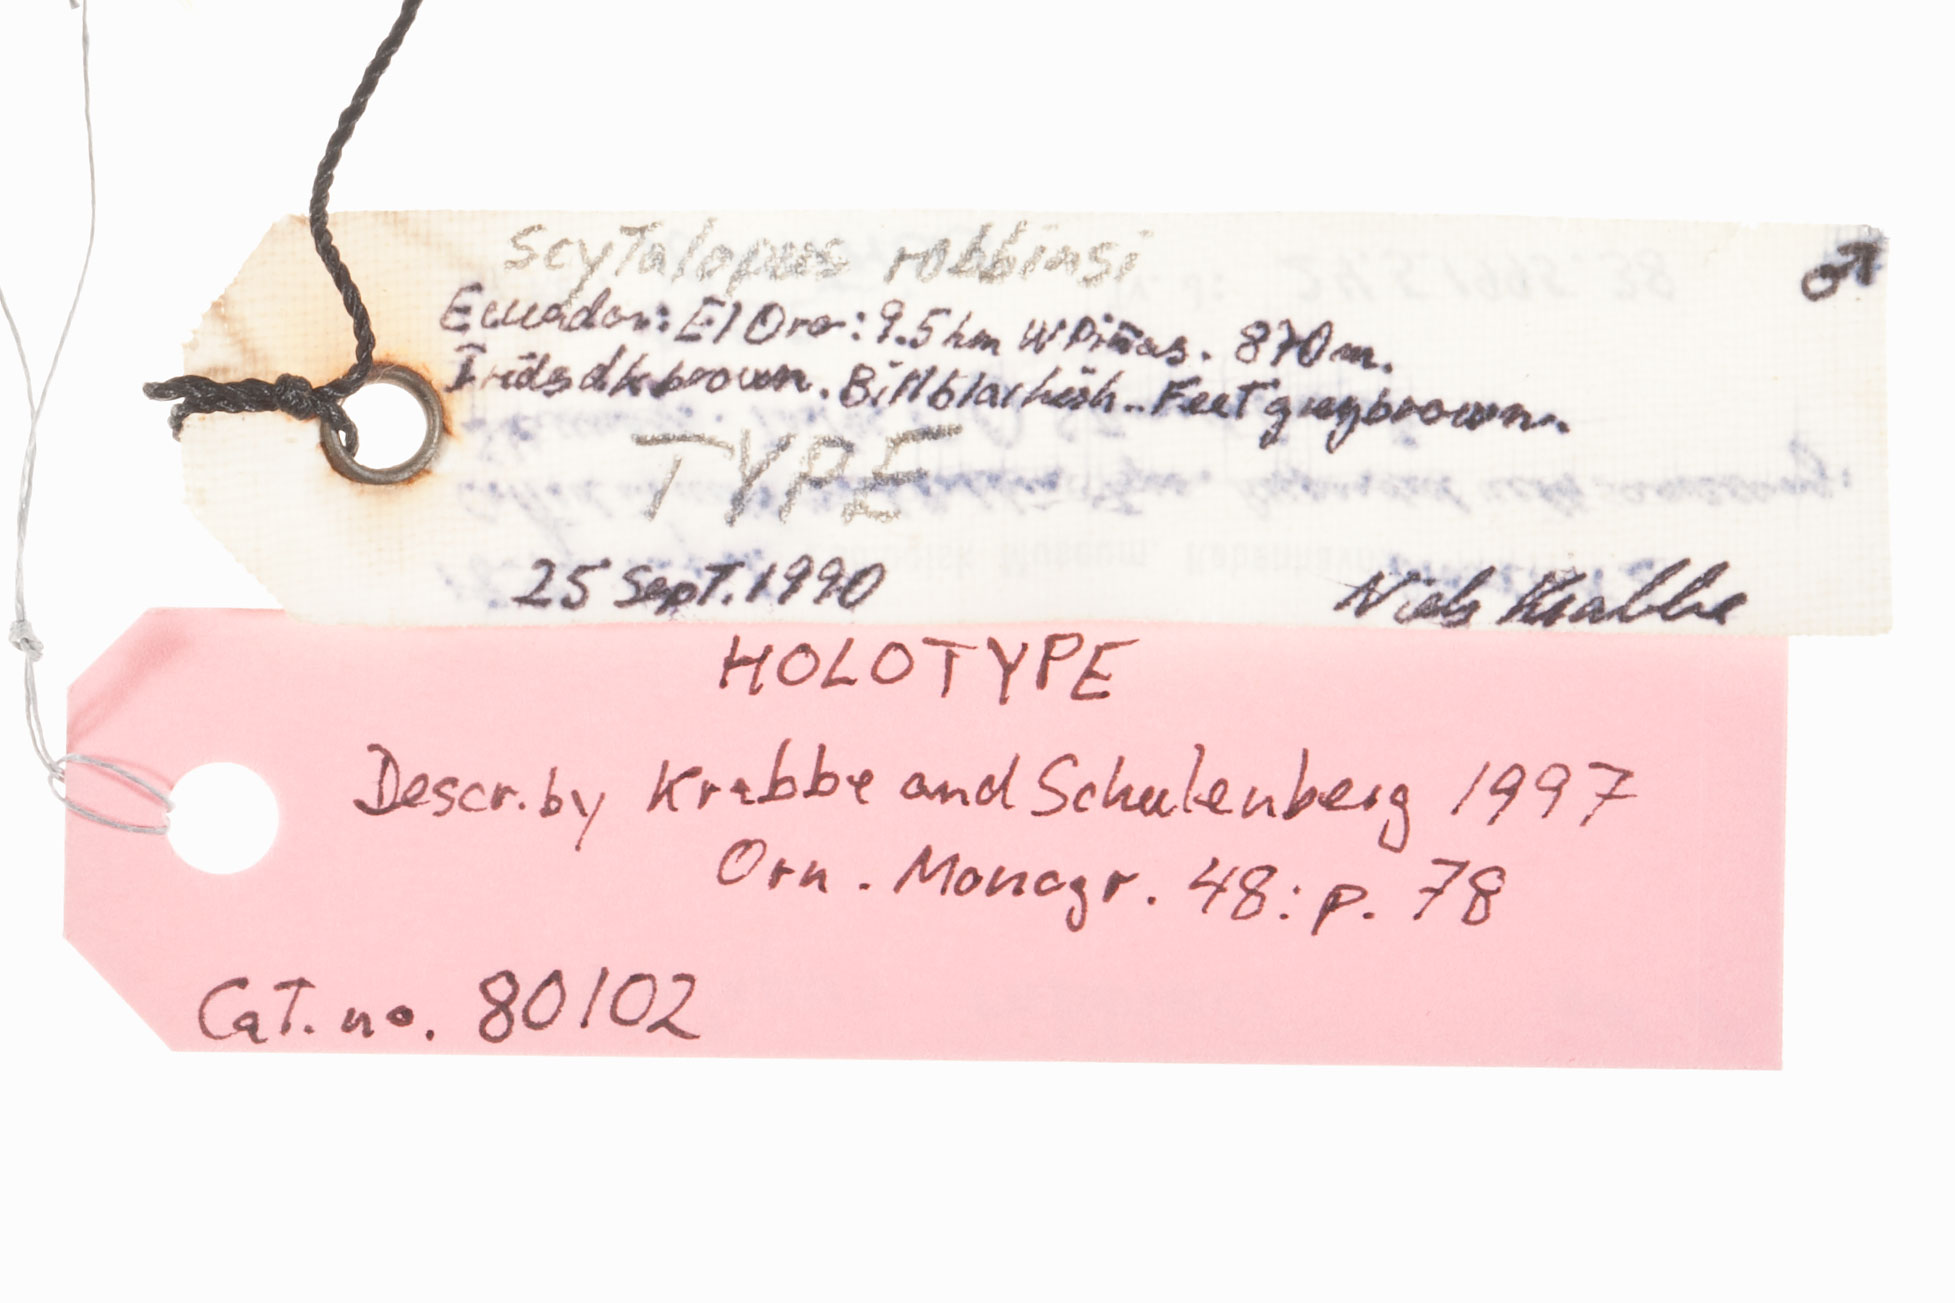 Scytalopus robbinsi
♂
Ecuador: El Oro: 9.5 km W Piñas. 870 m.
Iris dk brown. Bill blackish. Feet greybrown.
TYPE
25 Sept. 1990 Niels Krabbe
HOLOTYPE
Descr. by Krabbe and Schulenberg 1997
Orn. Monogr. 48: p. 78
Cat. no. 80102